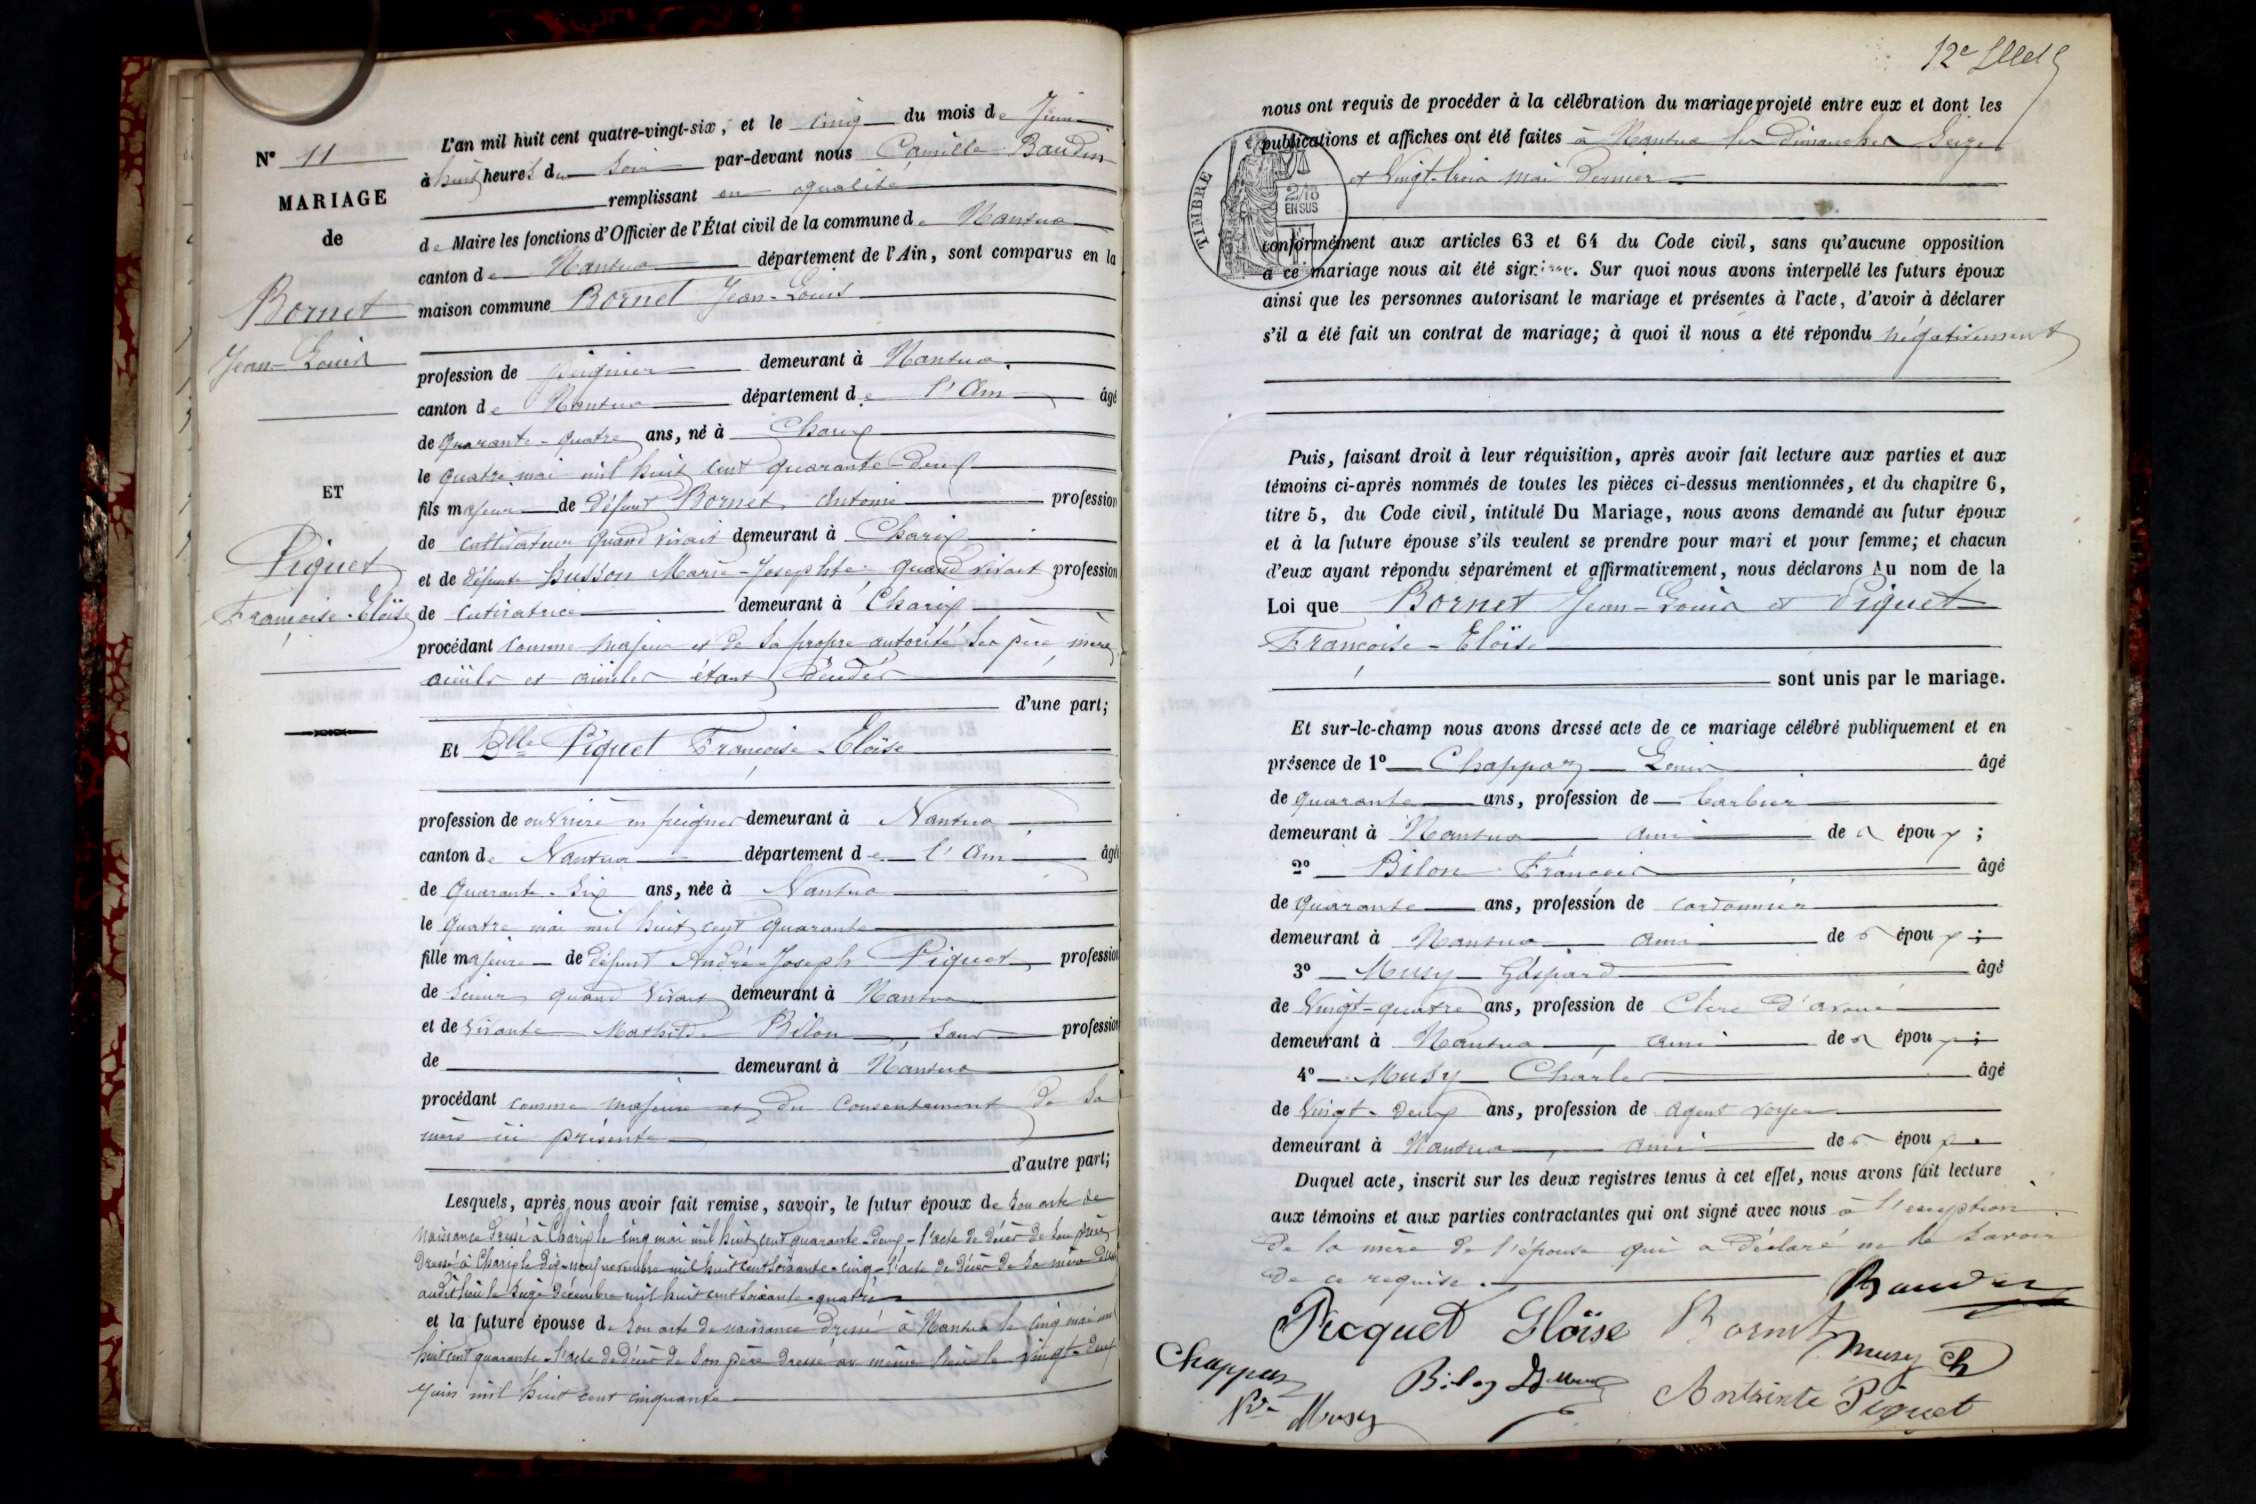 N° 11
MARIAGE
de
Bornet
Jean-Louis
ET
Piquet
Françoise-Eloïse
L'an mil huit cent quatre-vingt-six, et le cinq du mois de Juin
à huit heures du soir par-devant nous Camille Baudin
remplissant en qualité
de Maire les fonctions d'Officier de l'État civil de la commune de Nantua
canton de Nantua département de l'Ain, sont comparus en la
maison commune Bornet Jean-Louis
profession de peignier demeurant à Nantua
canton de Nantua département de l'Ain âgé
de quarante-quatre ans, né à Charix
le quatre mai mil huit cent quarante-deux
fils majeur de défunt Bornet Antoine profession
de cultivateur quand vivait demeurant à Charix
et de défunte Husson Marie-Josephte quand vivait profession
de cutivatrice demeurant à Charix
procédant comme majeur et de sa propre autorité ses père mère
aïeuls et aïeules étant décédés
d'une part;
Et Dlle Piquet Françoise-Eloïse
profession de ouvrière en peignes demeurant à Nantua
canton de Nantua département de l'Ain âgée
de quarante-six ans, née à Nantua
le quatre mai mil huit cent quarante
fille majeure de défunt André-Joseph Piquet profession
de scieur quand vivait demeurant à Nantua
et de vivante Mathilde Bilon sans profession
de demeurant à Nantua
procédant comme majeure et du consentement de sa
mère ici présente
d'autre part;
Lesquels, après nous avoir fait remise, savoir, le futur époux de son acte de
naissance dressé à Charix le cinq mai mil huit cent quarante-deux - l'acte de décès de son père
dressé à Charix le dix-neuf novembre mil huit cent soixante-cinq - l'acte de décès de sa mère dressé
audit lieu le seize décembre mil huit cent soixante-quatre
et la future épouse de son acte de naissance dressé à Nantua le cinq mai mil
huit cent quarante - l'acte de décès de son père dressé au même lieu le vingt-deux
juin mil huit cent cinquante
12e
nous ont requis de procéder à la célébration du mariage projeté entre eux et dont les
publications et affiches ont été faites à Nantua les Dimanches seize
et vingt-trois mai dernier
TIMBRE
2/10
EN SUS
conformément aux articles 63 et 64 du Code civil, sans qu'aucune opposition
à ce mariage nous ait été signifiée. Sur quoi nous avons interpellé les futurs époux
ainsi que les personnes autorisant le mariage et présentes à l'acte, d'avoir à déclarer
s'il a été fait un contrat de mariage; à quoi il nous a été répondu négativement
Puis, faisant droit à leur réquisition, après avoir fait lecture aux parties et aux
témoins ci-après nommés de toutes les pièces ci-dessus mentionnées, et du chapitre 6,
titre 5, du Code civil, intitulé Du Mariage, nous avons demandé au futur époux
et à la future épouse s'ils veulent se prendre pour mari et pour femme; et chacun
d'eux ayant répondu séparément et affirmativement, nous déclarons Au nom de la
Loi que Bornet Jean-Louis et Piquet
Françoise-Eloïse
sont unis par le mariage.
Et sur-le-champ nous avons dressé acte de ce mariage célébré publiquement et en
présence de 1° Chappaz Louis âgé
de quarante ans, profession de barbier
demeurant à Nantua ami de s époux;
2° Bilon François âgé
de quarante ans, profession de cordonnier
demeurant à Nantua ami de s époux;
3° Musy Gaspard âgé
de vingt-quatre ans, profession de Clerc d'avoué
demeurant à Nantua, ami de s époux;
4° Musy Charles âgé
de vingt-deux ans, profession de agent voyer
demeurant à Nantua, ami de s époux
Duquel acte, inscrit sur les deux registres tenus à cet effet, nous avons fait lecture
aux témoins et aux parties contractantes qui ont signé avec nous à l'exception
de la mère de l'épouse qui a déclaré ne le savoir
de ce requise.
Baudin
Picquet Gloïse Bornet
Chappaz Bilon Musy Ch
Musy Antointe Piquet